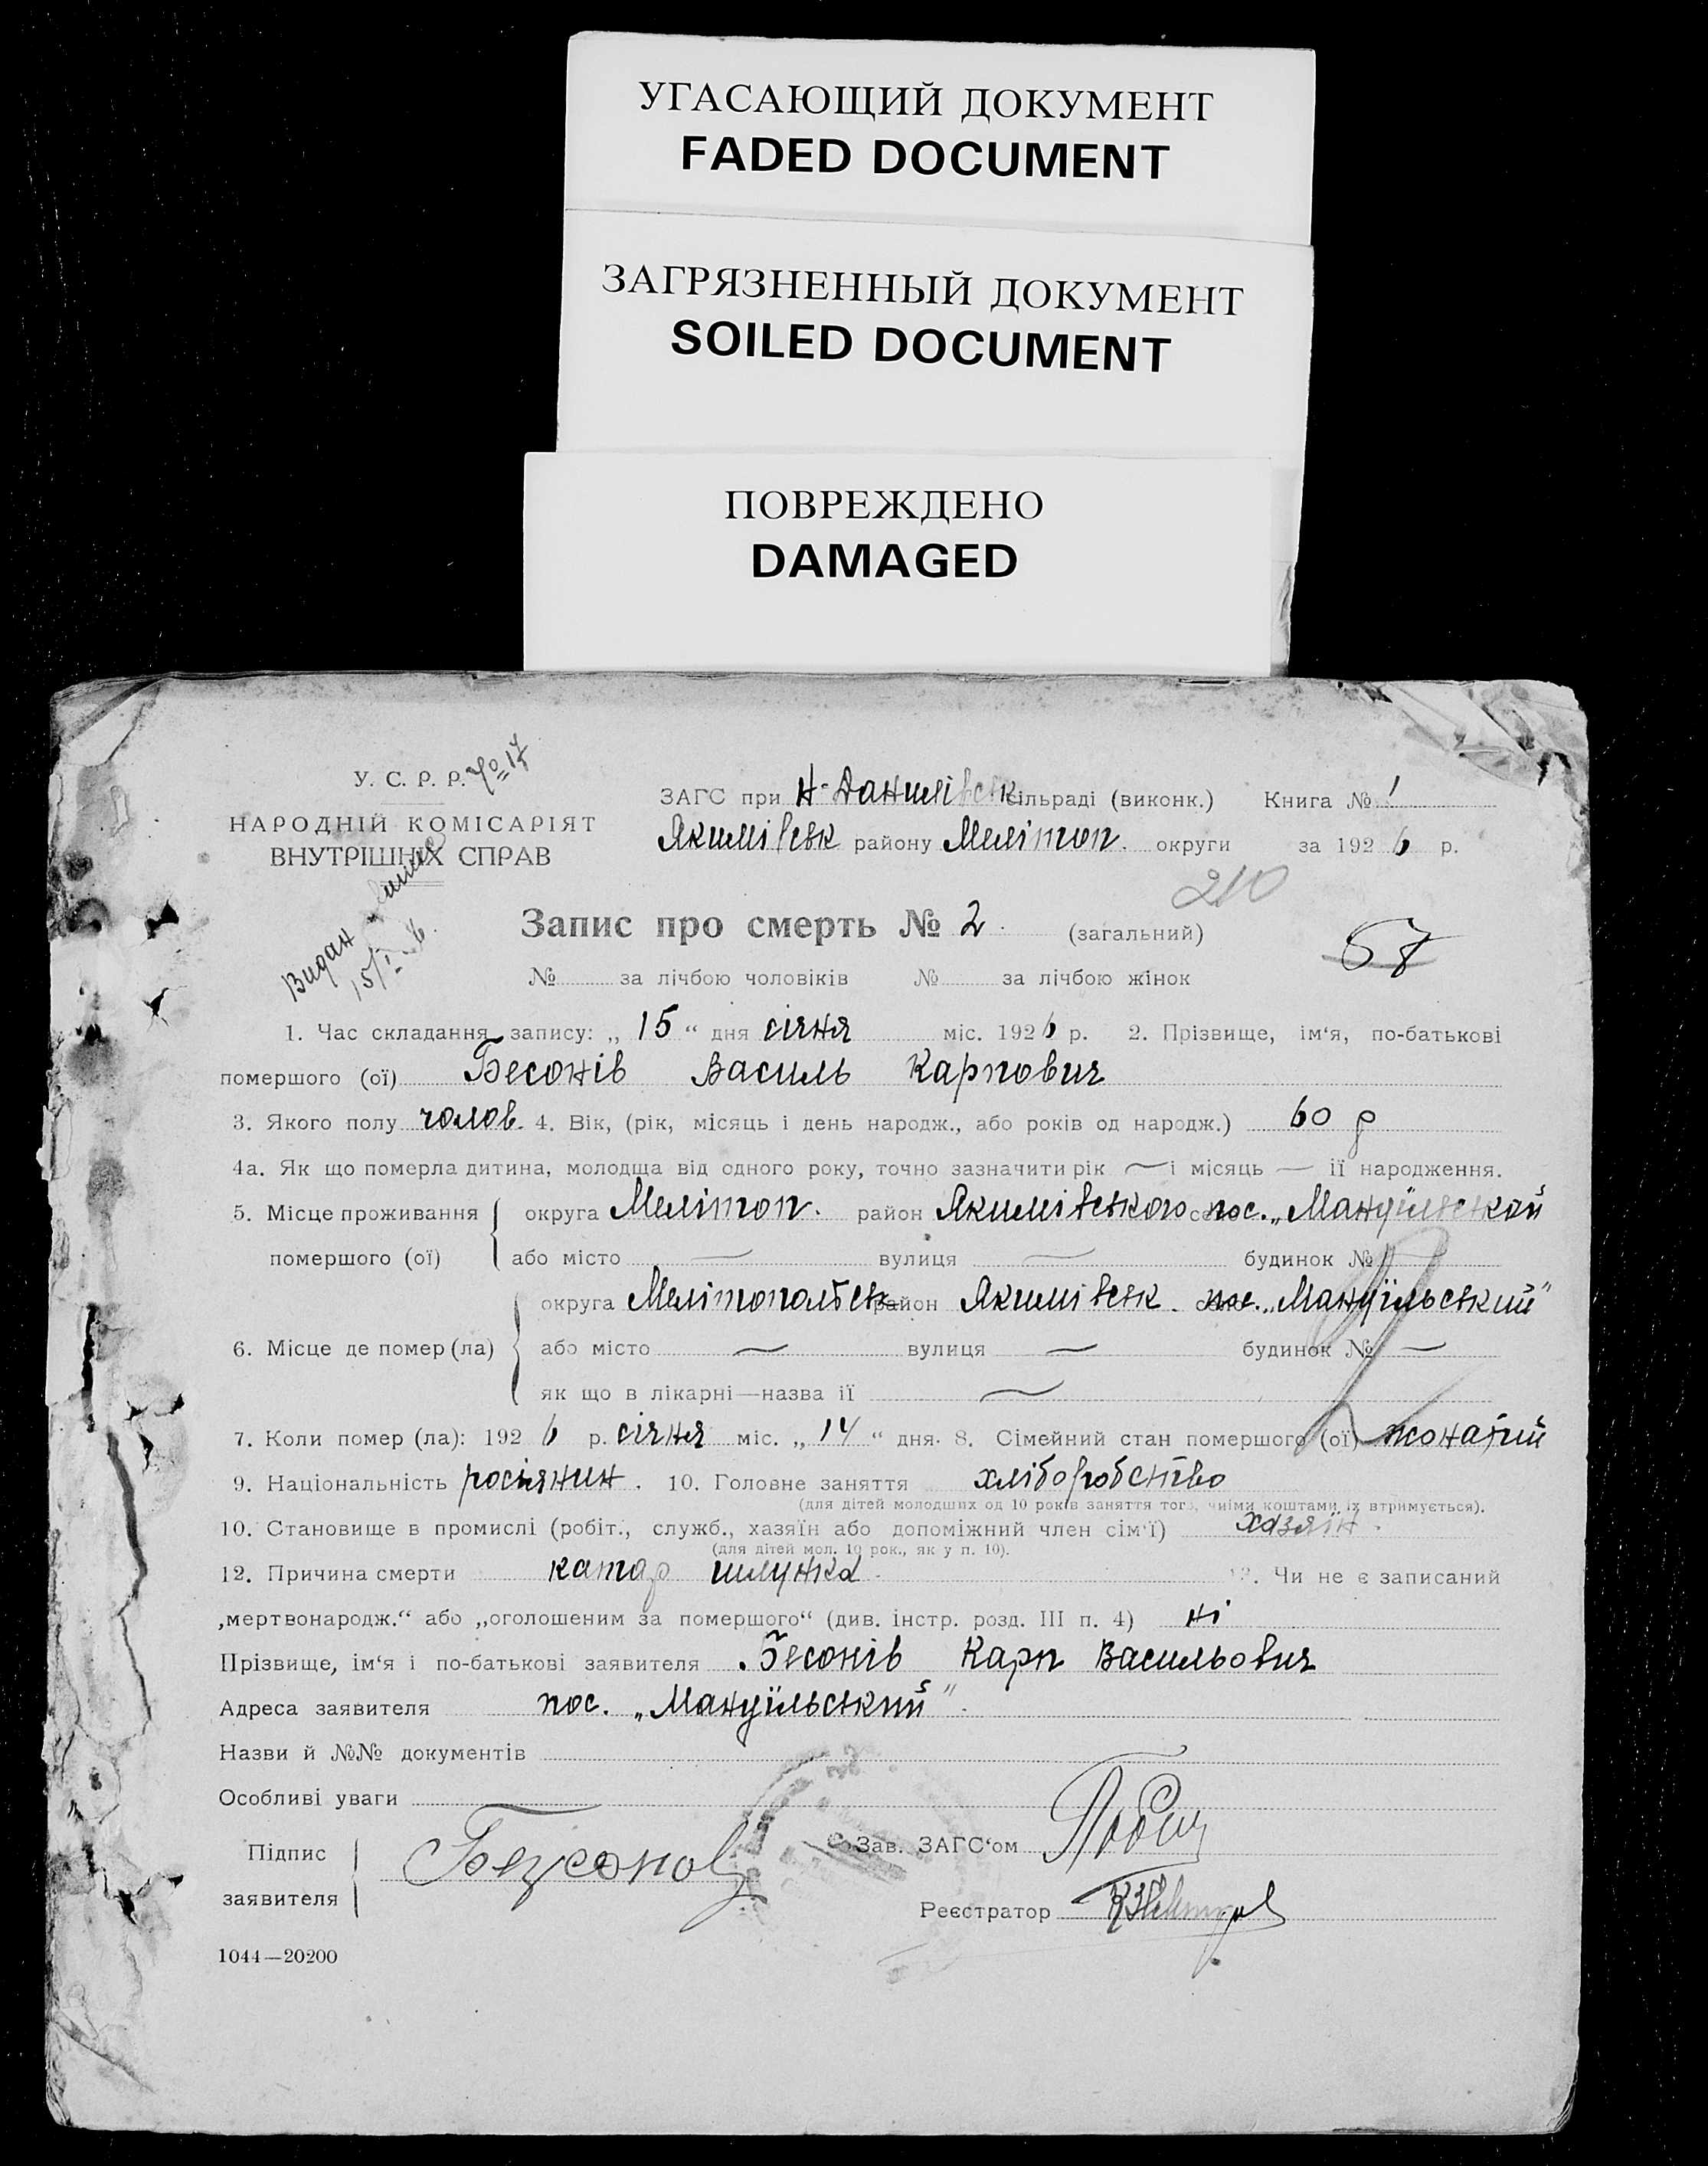 УГАСАЮЩИЙ ДОКУМЕНТ
FADED DOCUMENT
ЗАГРЯЗНЕННЫЙ ДОКУМЕНТ
SOILED DOCUMENT
ПОВРЕЖДЕНО
DAMAGED
У. С. Р. Р.
НАРОДНІЙ КОМІСАРІЯТ
ВНУТРІШНІХ СПРАВ
Видан
15/I
ЗАГС при Н-Данилівськ сільраді (виконк.) Книга № 1
Якимівськ району Мелітоп. округи за 1926 р.
210
Запис про смерть № 2. (загальний)
57
№ за лічбою чоловіків № за лічбою жінок
1. Час складання запису: „ 15 “ дня січня міс. 1926 р. 2. Прізвище, ім‘я, по-батькові
помершого (ої) Бесонів Василь Карпович
3. Якого полу чолов. 4. Вік, (рік, місяць і день народж., або років од народж.) 60 р
4а. Як що померла дитина, молодща від одного року, точно зазначити рік — і місяць — її народження.
5. Місце проживання округа Мелітоп. район Якимівського пос. „Мануїльський
помершого (ої) або місто — вулиця — будинок №
округа Мелітопольськ район Якимівськ. пос. „Мануїльський“
6. Місце де помер (ла) або місто — вулиця — будинок № —
як що в лікарні—назва її —
7. Коли помер (ла): 1926 р. січня міс. „ 14 “ дня. 8. Сімейний стан помершого (ої) жонатий
9. Національність росіянин. 10. Головне заняття хліборобство
(для дітей молодших од 10 років заняття того, чиїми коштами їх втримується).
10. Становище в промислі (робіт., служб., хазяїн або допоміжний член сім‘ї) хазяїн.
(для дітей мол. 10 рок., як у п. 10).
12. Причина смерти катар шлунка. 13. Чи не є записаний
„мертвонародж.“ або „оголошеним за помершого“ (див. інстр. розд. III п. 4) ні
Прізвище, ім‘я і по-батькові заявителя Бесонів Карп Васильович
Адреса заявителя пос. „Мануїльський“.
Назви й №№ документів
Особливі уваги
Підпис
заявителя
Зав. ЗАГС‘ом
Реєстратор
1044—20200